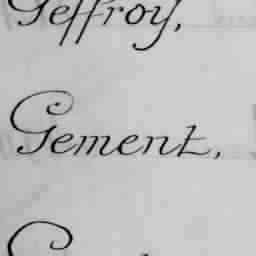 Geffroy,
Gement,